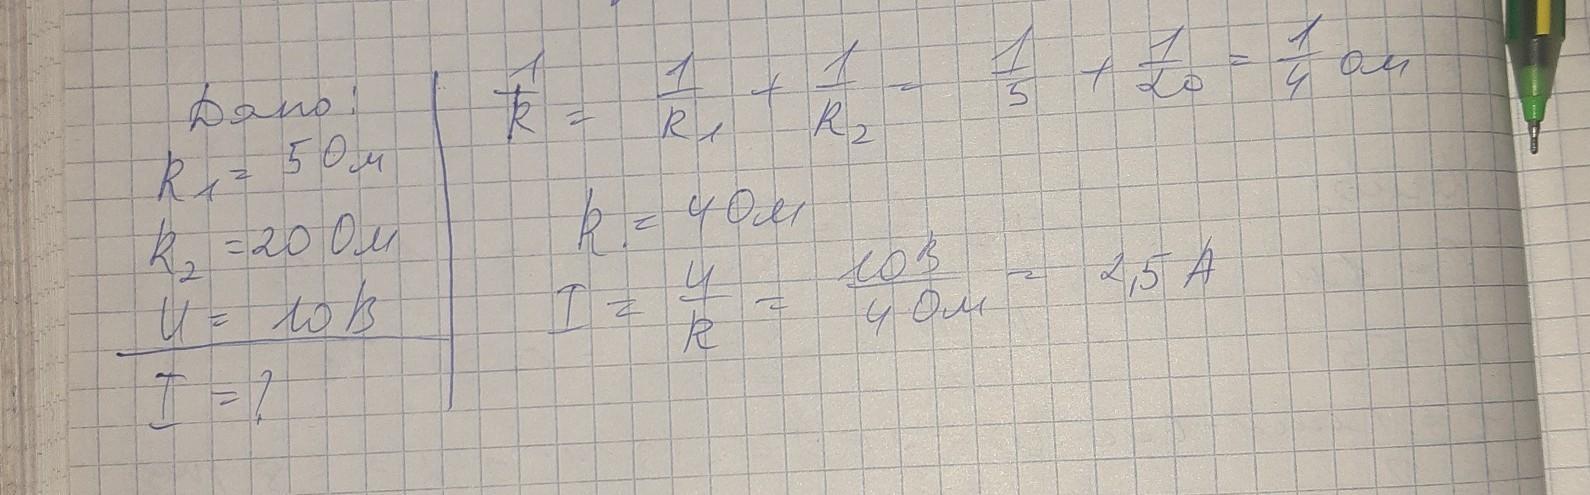 Дано:
R₁ = 5 Ом
R₂ = 20 Ом
U = 10 В
I = ?
1/R = 1/R₁ + 1/R₂ = 1/5 + 1/20 = 1/4 Ом
R = 4 Ом
I = U/R = 10 В/4 Ом = 2,5 А